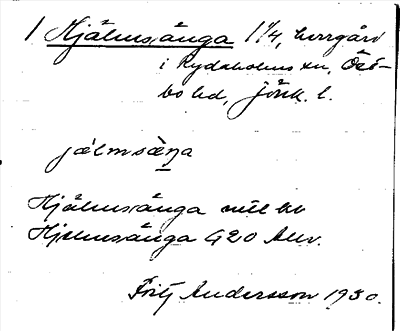 1 Hjälmsänga 1 1/4, herrgård
i Rydaholms sn, Öst-
bo hd, Jönk. l.
jælmsæ̀ŋa
Hjälmsänga
Hjelmsänga G20 Allv.
Fritz Andersson 1930.